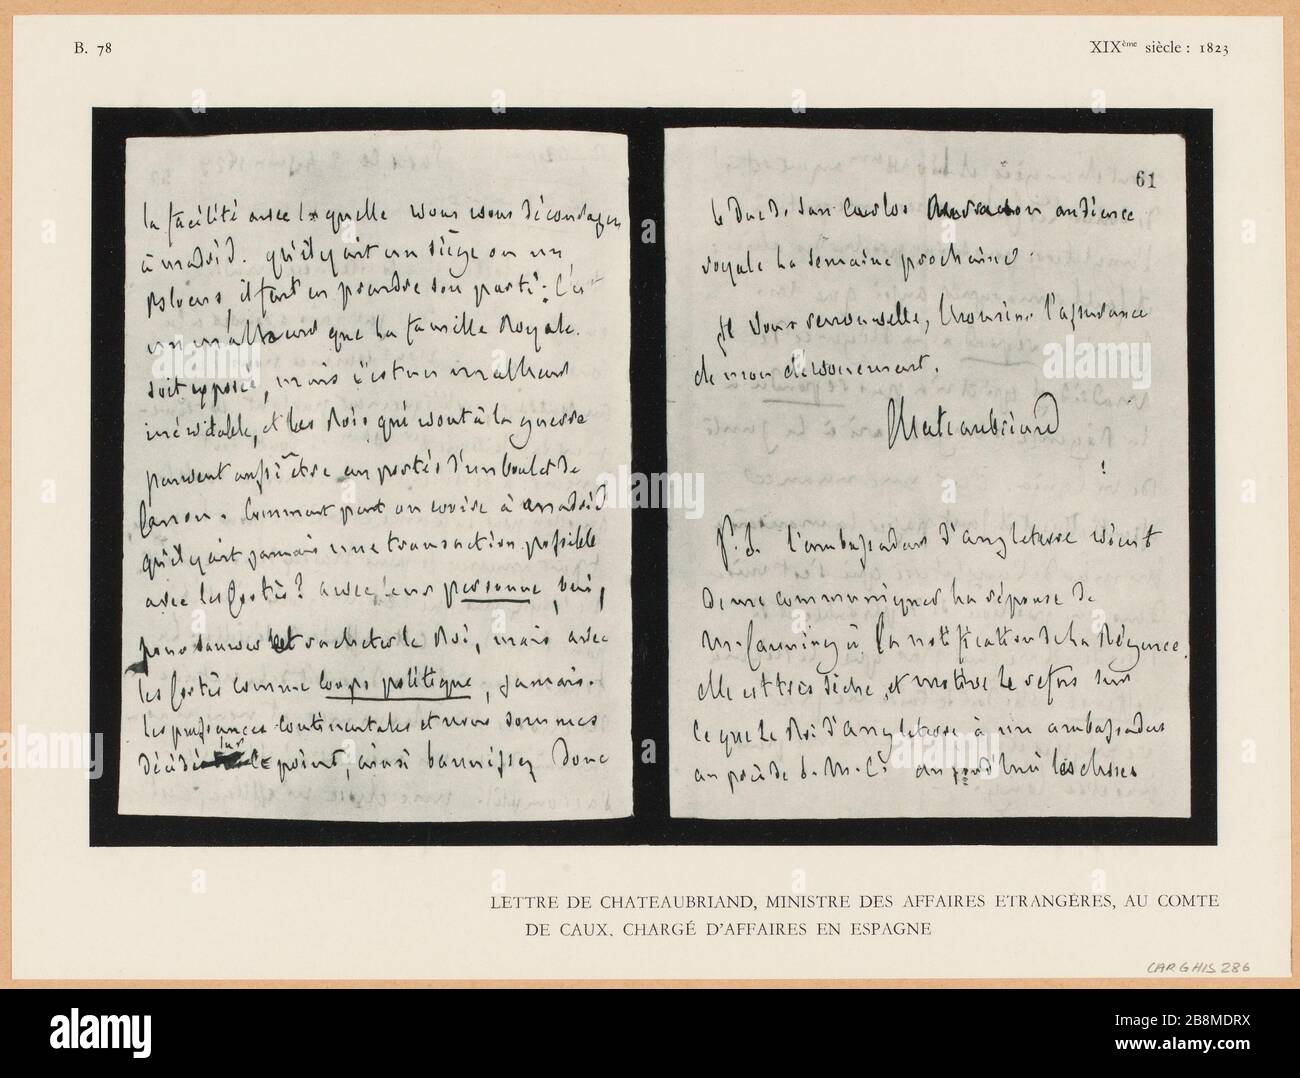 B. 78
XIXème siècle : 1823
la facilité avec laquelle vous vous découragez
à Madrid. qu'il y ait un siège ou un
plusieurs, il faut en prendre son parti : C'est
un malheur que la famille Royale
soit exposée, mais c'est un malheur
inévitable, et les Rois qui vont à la guerre
peuvent aussi être emportés d'un boulet de
Canon. Comment peut on croire à Madrid
qu'il y ait jamais une transaction possible
avec les Cortès ? avec leurs personne, oui,
pour sauver et racheter le Roi, mais avec
les Cortès comme corps politique, jamais.
les puissances continentales et nous sommes
décidés sur ce point, ainsi bannissez donc
61
le Duc de San Carlos aura son audience
royale la semaine prochaine.
Je vous renouvelle, Monsieur l'assurance
de mon dévouement.
Chateaubriand
P. S. l'ambassadeur d'angleterre vient
de me communiquer la réponse de
M. Canning à la notification de la Régence.
elle est très sèche, et motive le refus sur
ce que le Roi d'angleterre a un ambassadeur
auprès de S. M. C. aujourd'hui les choses
LETTRE DE CHATEAUBRIAND, MINISTRE DES AFFAIRES ETRANGÈRES, AU COMTE
DE CAUX, CHARGÉ D'AFFAIRES EN ESPAGNE
CARGHIS 286
alamy
Image ID: 2B8MDRX
www.alamy.com